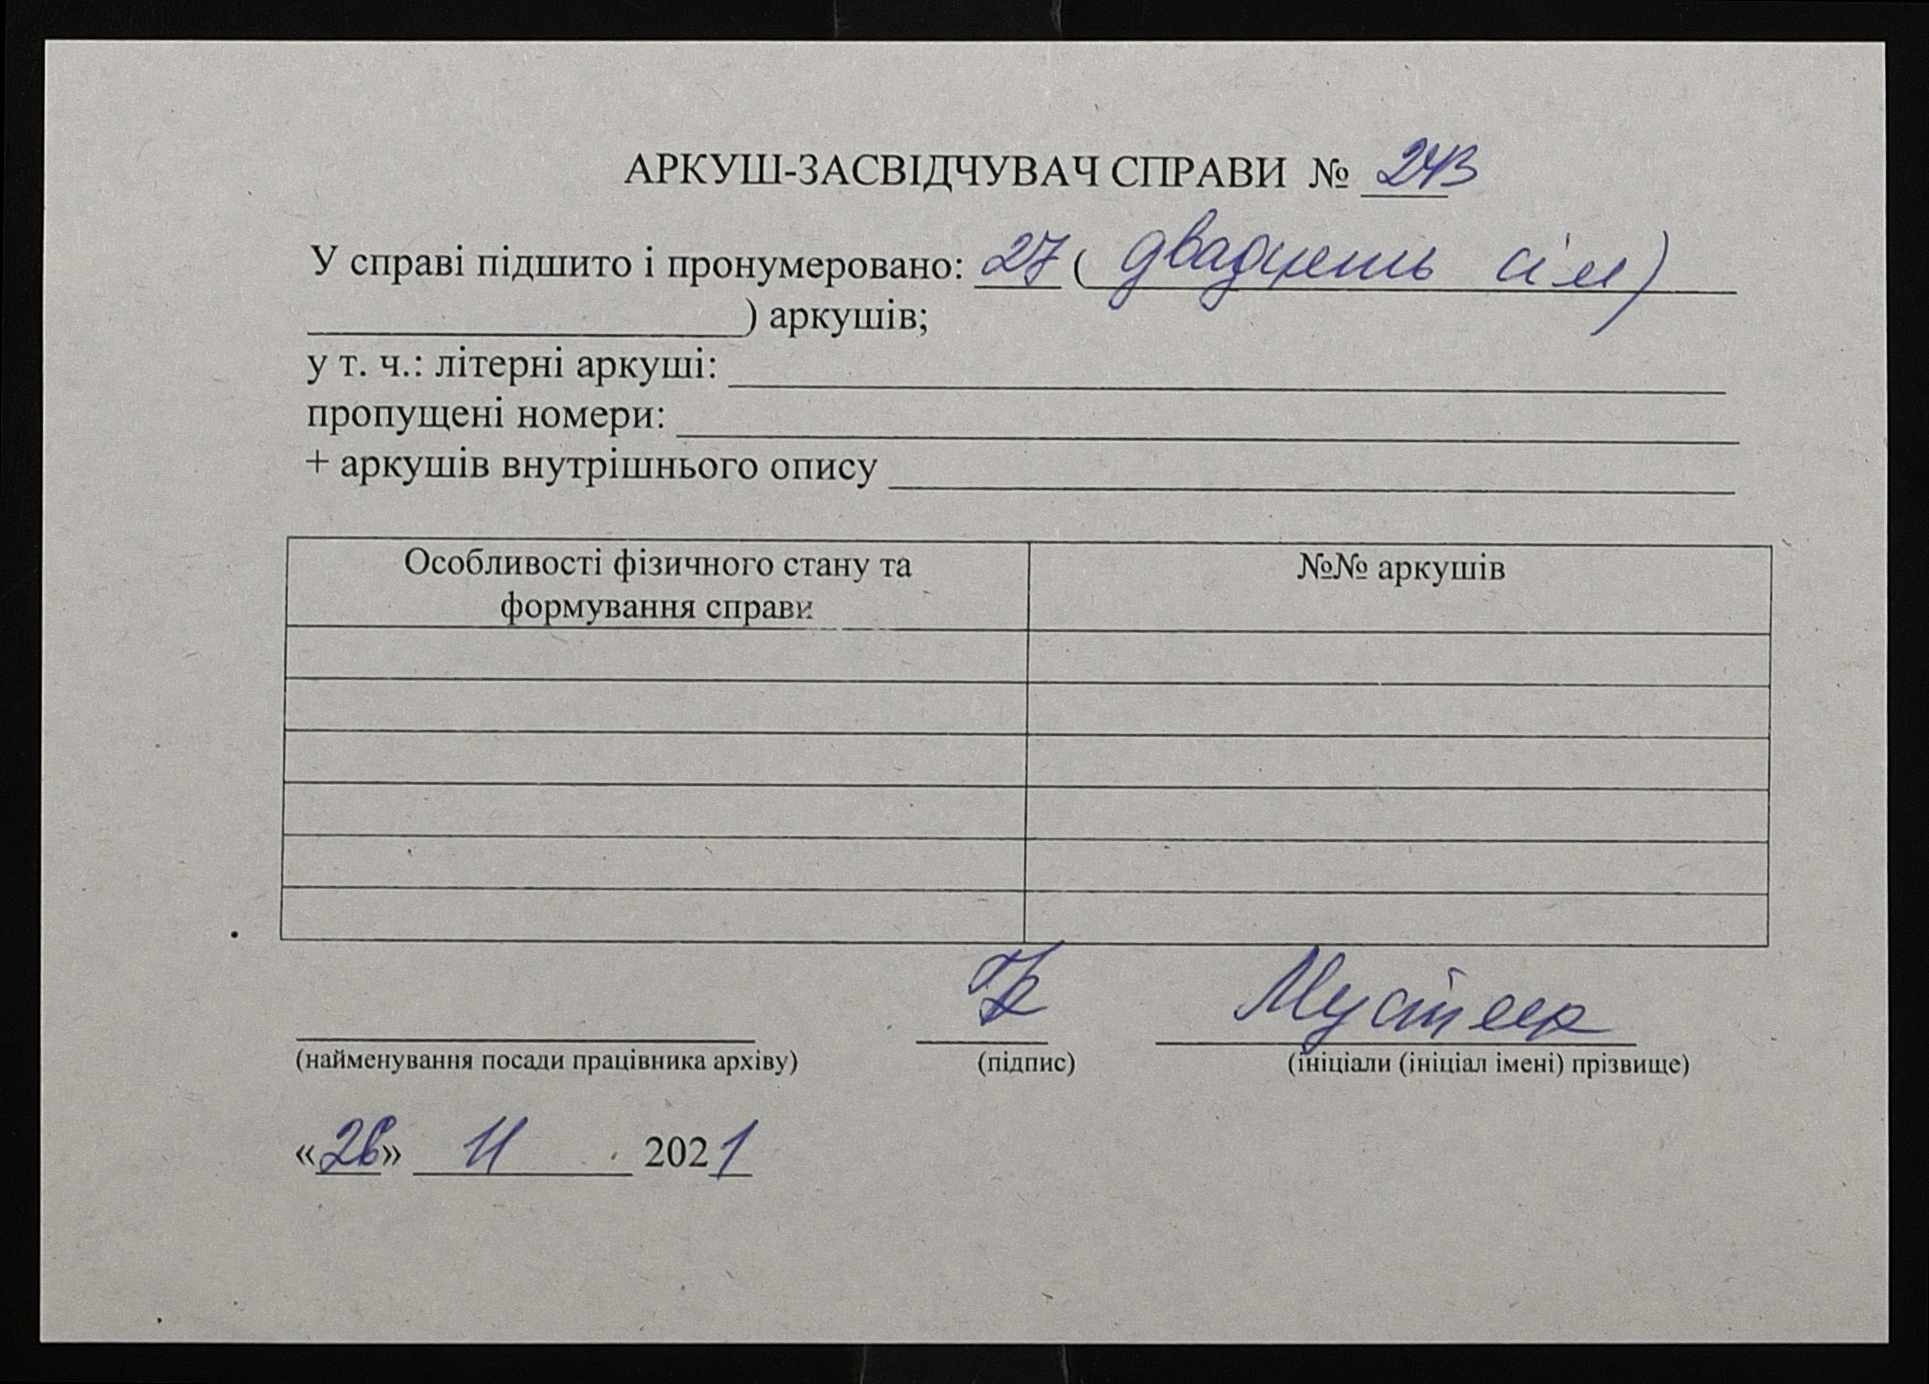 АРКУШ-ЗАСВІДЧУВАЧ СПРАВИ № 243
У справі підшито і пронумеровано: 27 ( двадцять сім )
) аркушів;
у т. ч.: літерні аркуші:
пропущені номери:
+ аркушів внутрішнього опису
Особливості фізичного стану та
формування справи
№№ аркушів
(найменування посади працівника архіву) (підпис) (ініціали (ініціал імені) прізвище)
«26» 11 2021